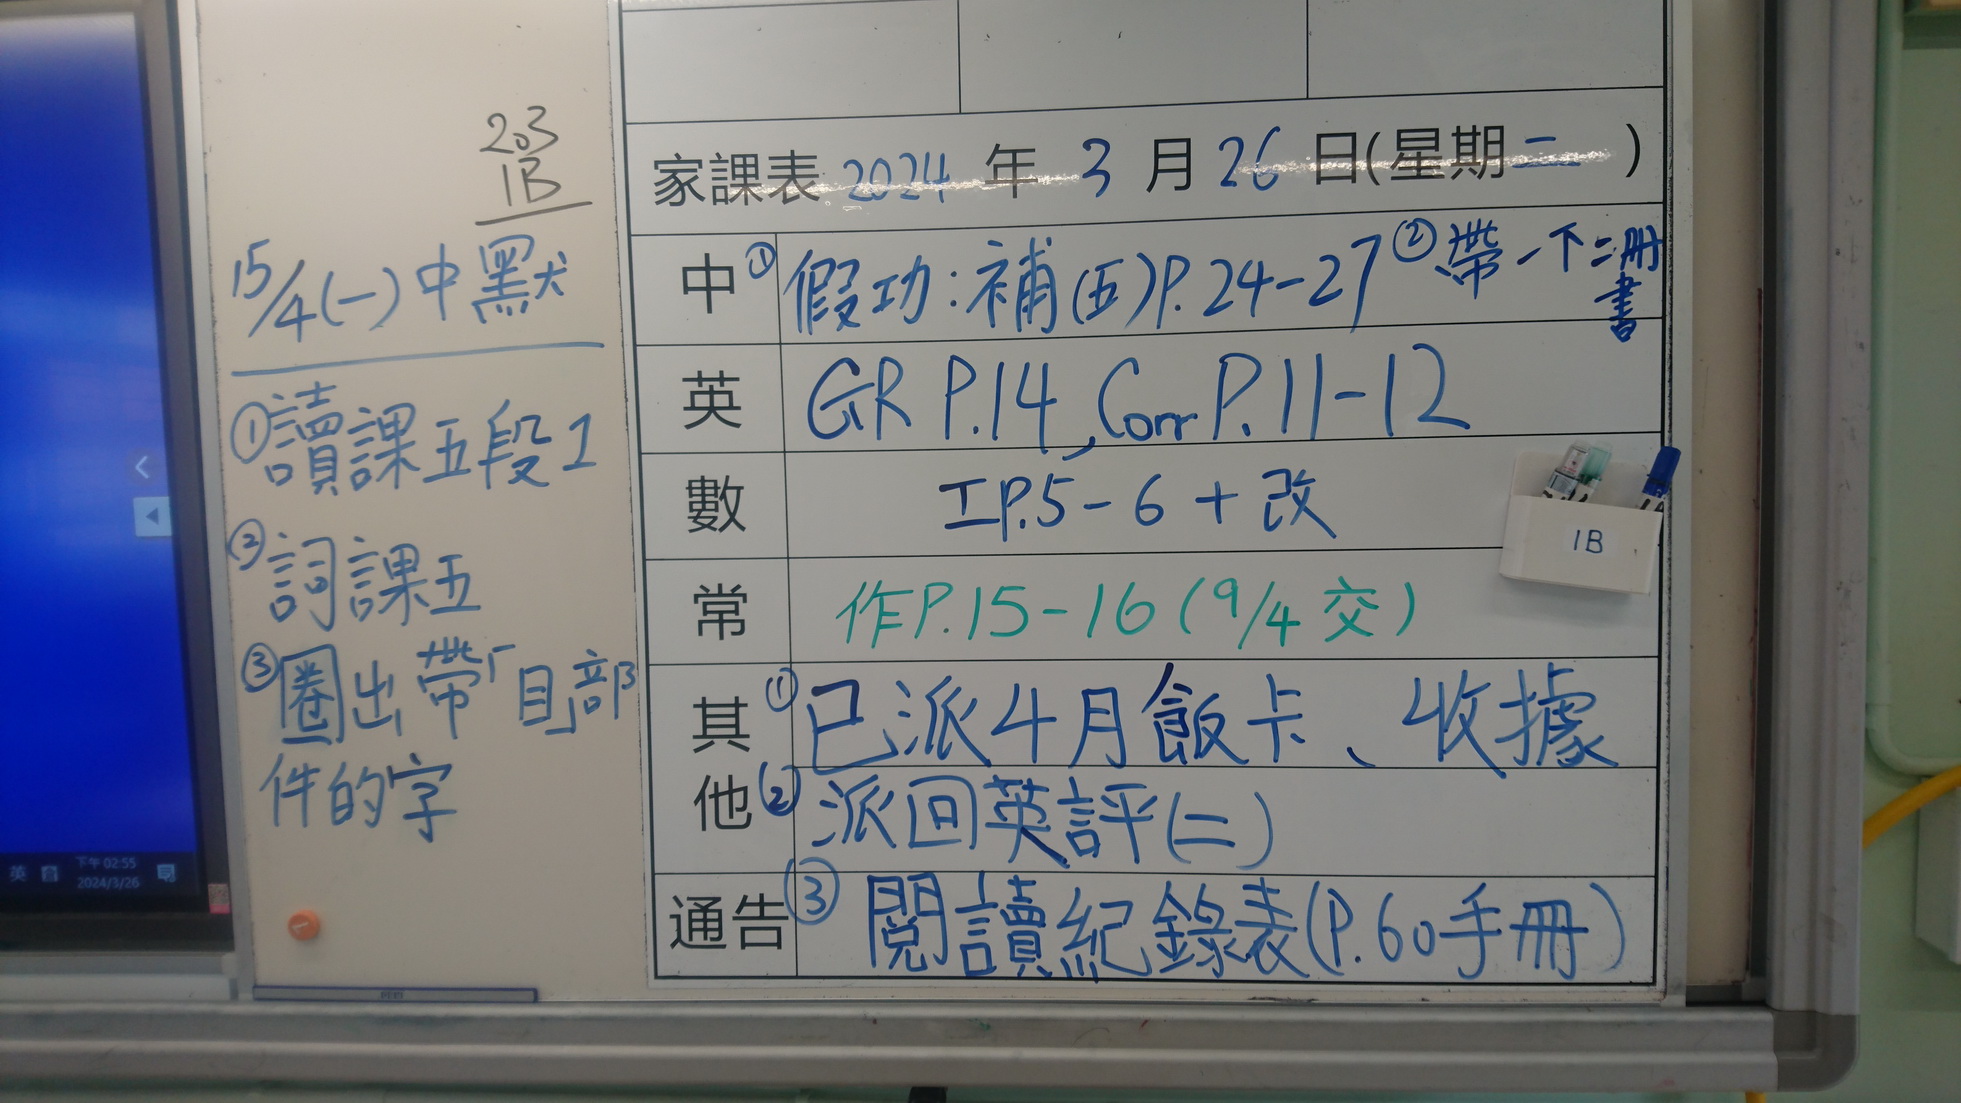 203
1B
15/4(一)中默
①讀課五段1
②詞課五
③圈出帶「目」部
件的字
家課表 2024 年 3 月 26 日(星期二)
中 ①假功:補(五)P.24-27 ②帶一下二冊
書
英 GR P.14, Corr P.11-12
數 工P.5-6+改
常 作P.15-16(9/4交)
其他 ①已派4月飯卡、收據
②派回英評(二)
通告 ③閱讀紀錄表(P.60手冊)
1B
英
下午 02:55
2024/3/26